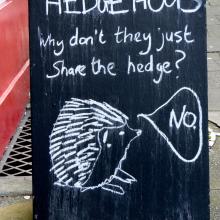 HEDGEHOGS
Why don't they just
Share the hedge?
NO.